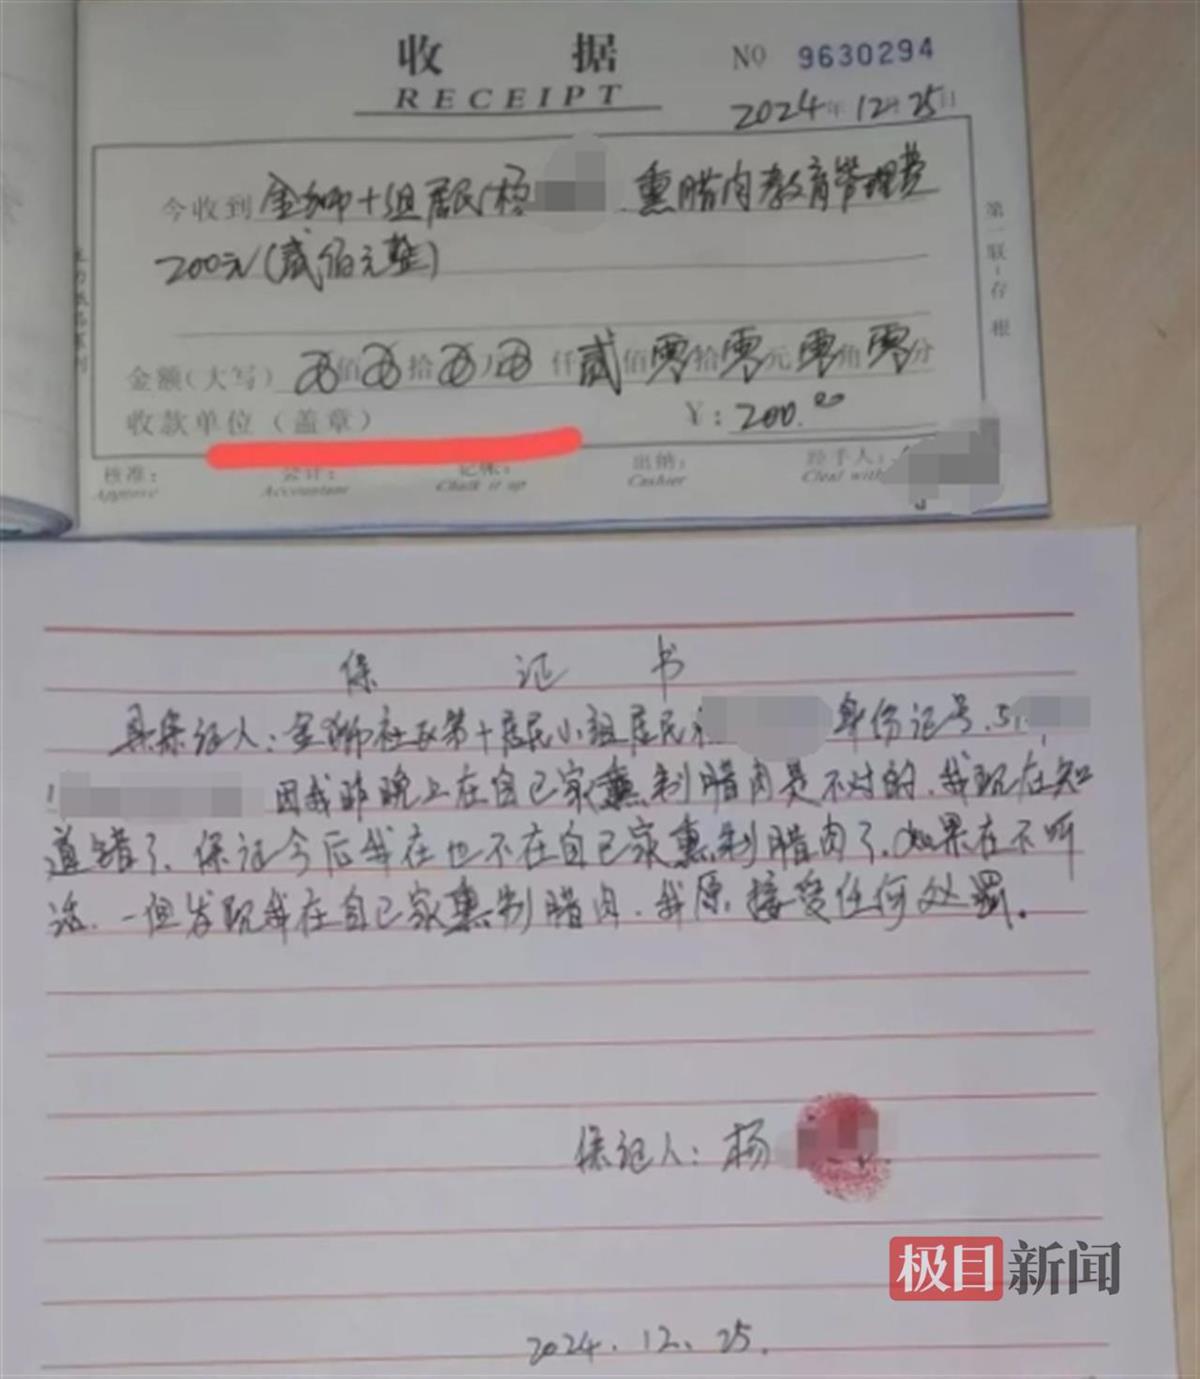 收 据 NO 9630294
RECEIPT
2024年12月25日
今收到金狮十组居民杨 熏腊肉教育管理费
200元(贰佰元整)
金额(大写) 佰 拾 万 仟贰佰零拾零元零角零分
收款单位(盖章) ¥:200.00
核准: 会计: 记帐: 出纳: 经手人:
Approve Accountant Chalk it up Cashier Cleal with
第一联:存根
保 证 书
具保证人:金狮社区第十居民小组居民 身份证号:51
因我昨晚上在自己家熏制腊肉是不对的,我现在知
道错了、保证今后我在也不在自己家熏制腊肉了、如果在不听
话、一但发现我在自己家熏制腊肉,我原接受任何处罚。
保证人:杨
极目新闻
2024.12.25.